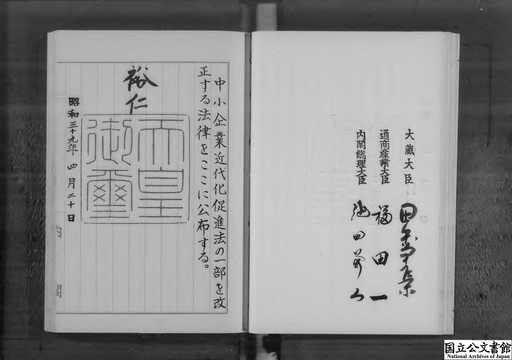 大蔵大臣 田中角榮
通商産業大臣 福田一
内閣総理大臣 池田勇人
中小企業近代化促進法の一部を改
正する法律をここに公布する。
裕仁
天皇
御璽
昭和三十九年四月二十日
国立公文書館
National Archives of Japan